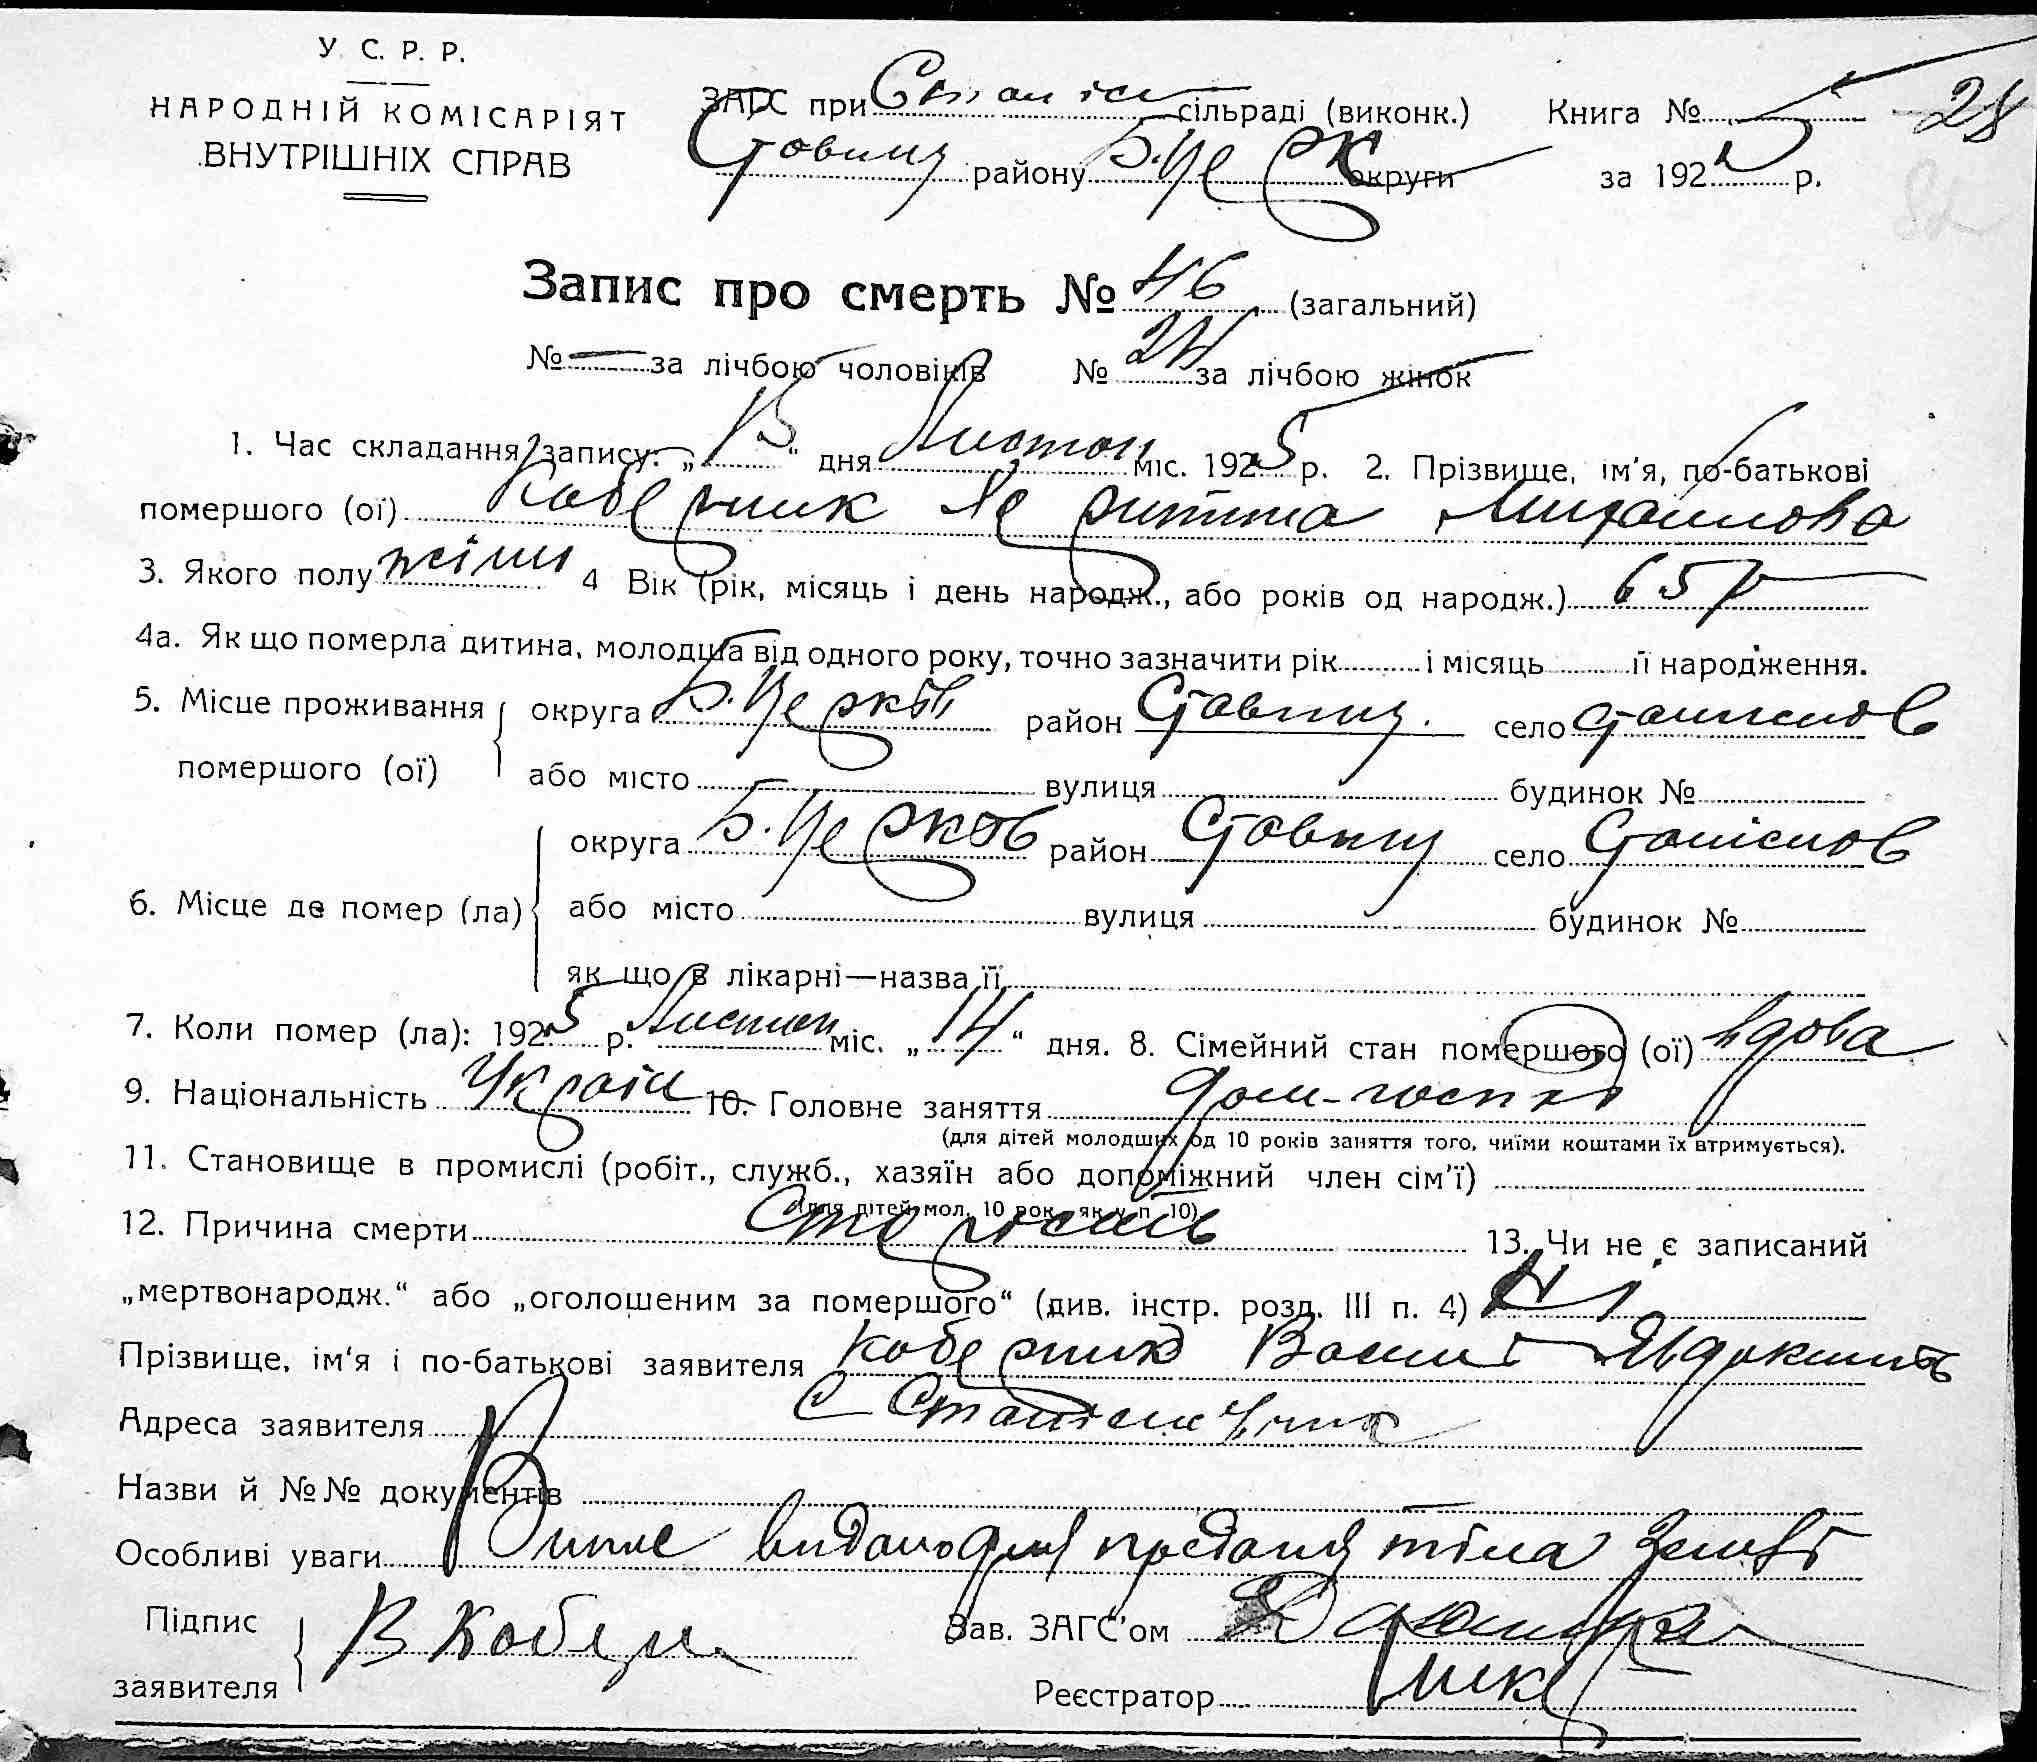 У. С. Р. Р.
НАРОДНІЙ КОМІСАРІЯТ
ВНУТРІШНІХ СПРАВ
ЗАГС при Станісл сільраді (виконк.) Книга № 5 28
Ставищ району Б.Церк округи за 1925 р.
Запис про смерть № 46 (загальний)
№ — за лічбою чоловіків № 24 за лічбою жінок
1. Час складання запису: „15“ дня Листоп міс. 1925 р. 2. Прізвище, ім'я, по-батькові
помершого (ої) Коберник Михайлова
3. Якого полу жіноч 4 Вік (рік, місяць і день народж., або років од народж.) 65 р
4а. Як що померла дитина, молодша від одного року, точно зазначити рік і місяць її народження.
5. Місце проживання помершого (ої) округа Б.Церків район Ставищ. село Станіслов
або місто вулиця будинок №
6. Місце де помер (ла) округа Б.Церков район Ставищ село Станіслов
або місто вулиця будинок №
як що в лікарні—назва її
7. Коли помер (ла): 1925 р. Листоп міс. „14“ дня. 8. Сімейний стан помершого (ої) вдова
9. Національність Україн 10. Головне заняття дом-госпо
(для дітей молодших од 10 років заняття того, чиїми коштами їх втримується).
11. Становище в промислі (робіт., служб., хазяїн або допоміжний член сім'ї)
(для дітей мол. 10 рок. як у п 10)
12. Причина смерти Старість 13. Чи не є записаний
„мертвонародж.“ або „оголошеним за помершого“ (див. інстр. розд. III п. 4) Ні
Прізвище, ім'я і по-батькові заявителя Коберник Васил
Адреса заявителя С Станіславчик
Назви й №№ документів
Особливі уваги Випис видано для предання тіла землі
Підпис заявителя В Коберн Зав. ЗАГС'ом
Реєстратор